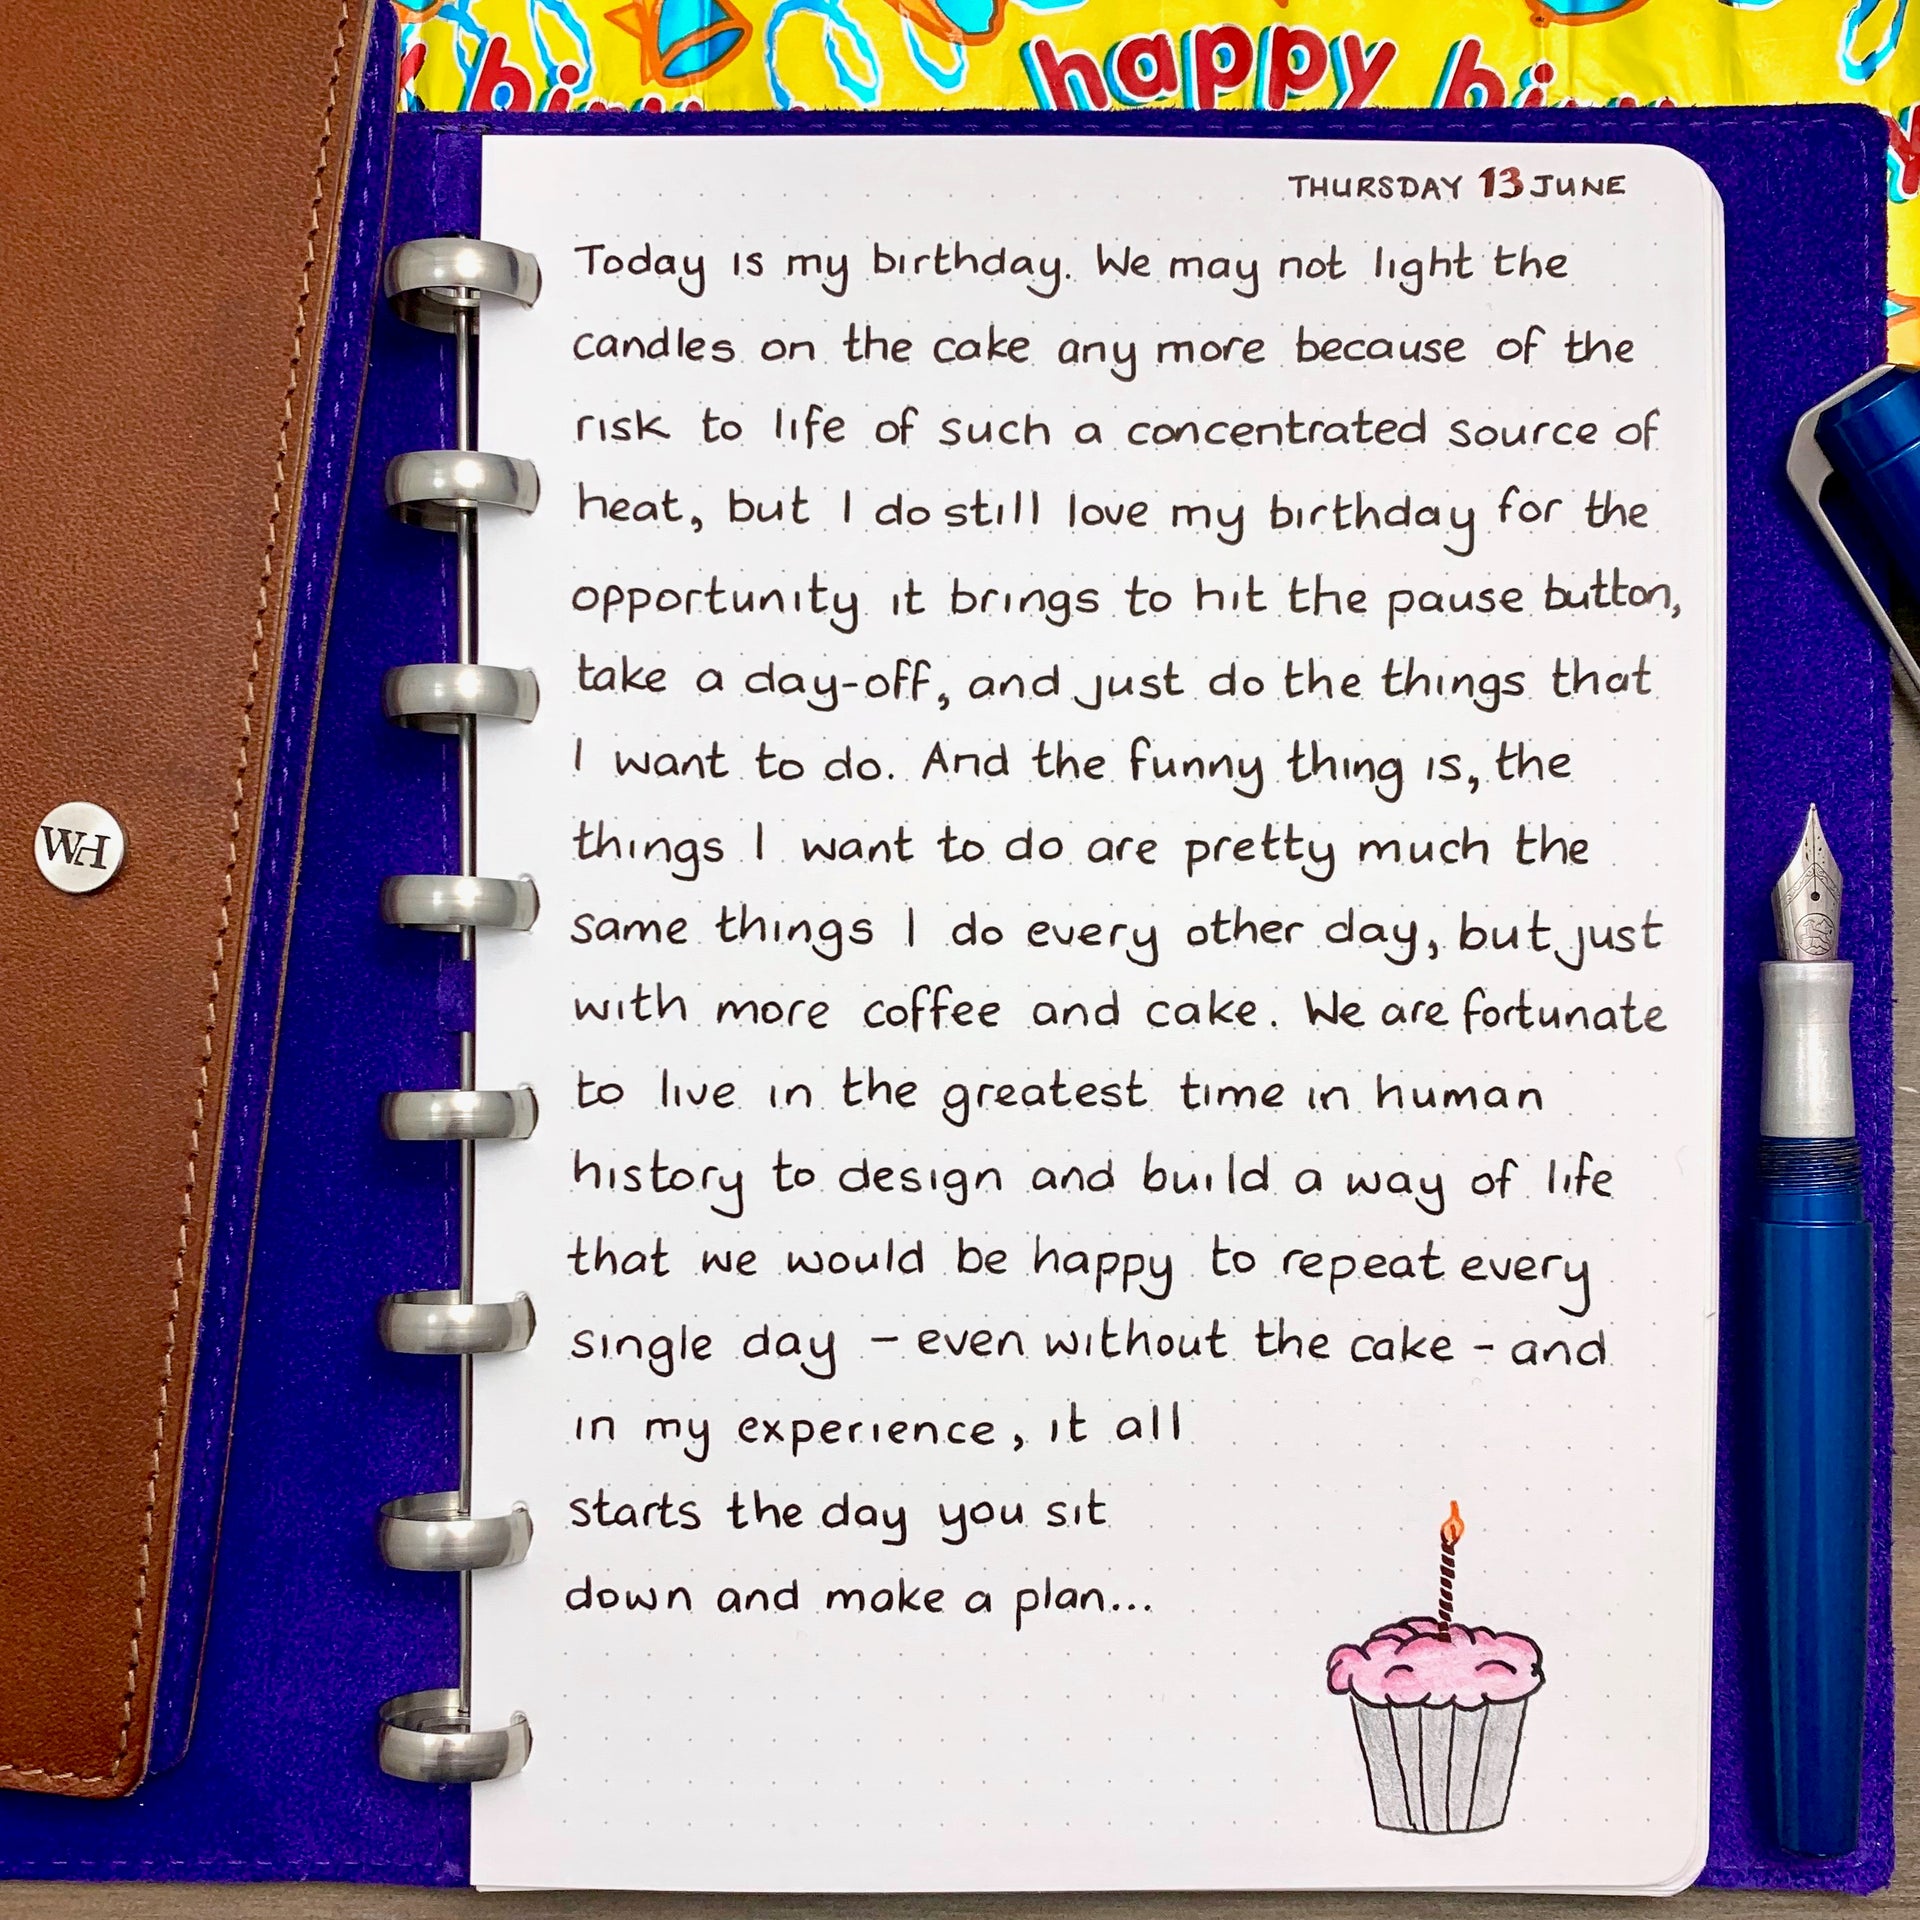 bir
happy bir
WH
THURSDAY 13 JUNE
Today is my birthday. We may not light the
candles on the cake any more because of the
risk to life of such a concentrated source of
heat, but I do still love my birthday for the
opportunity it brings to hit the pause button,
take a day-off, and just do the things that
I want to do. And the funny thing is, the
things I want to do are pretty much the
same things I do every other day, but just
with more coffee and cake. We are fortunate
to live in the greatest time in human
history to design and build a way of life
that we would be happy to repeat every
single day – even without the cake - and
in my experience, it all
starts the day you sit
down and make a plan...